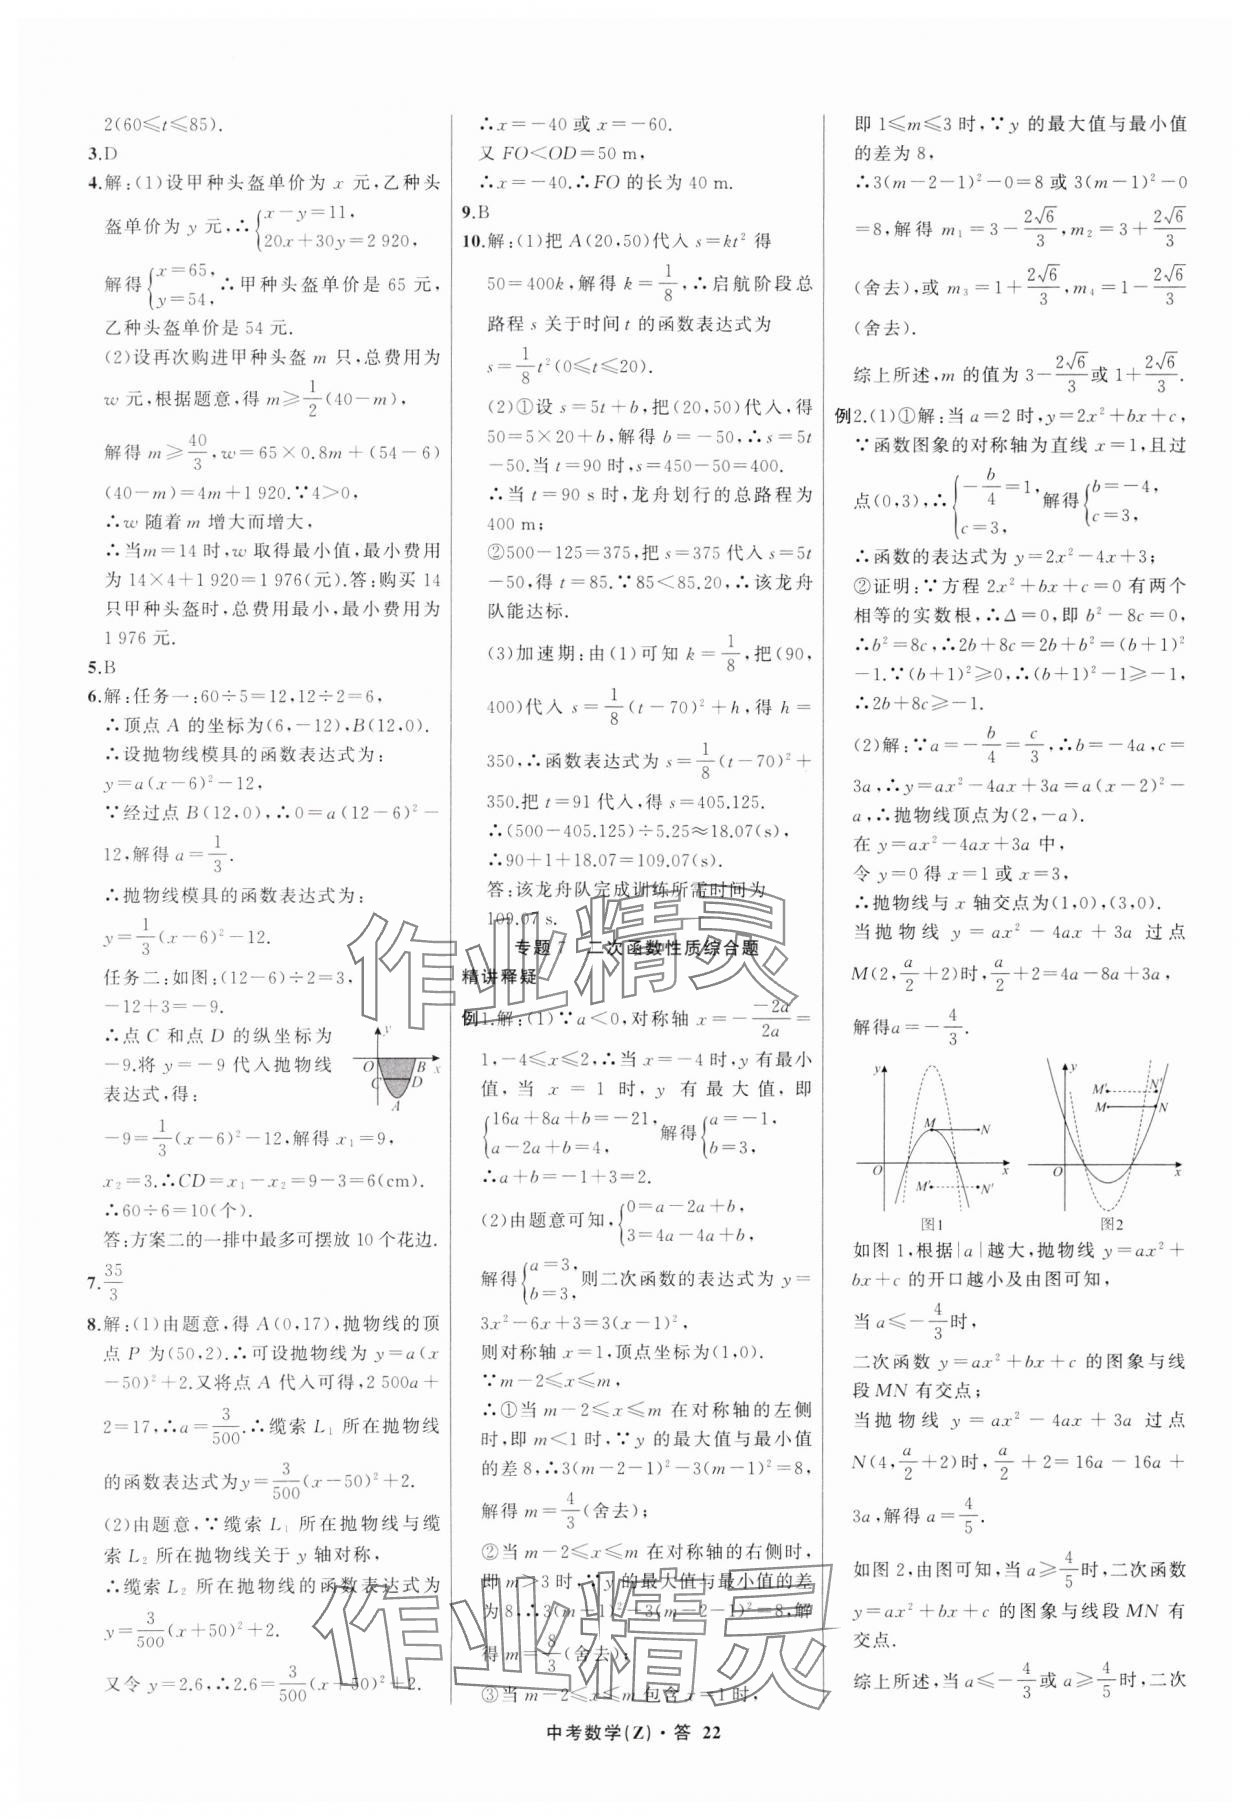 2(60≤t≤85).
3.D
4.解:(1)设甲种头盔单价为 x 元,乙种头
盔单价为 y 元,∴{x-y=11,
20x+30y=2 920,
解得{x=65,
y=54, ∴甲种头盔单价是 65 元,
乙种头盔单价是 54 元.
(2)设再次购进甲种头盔 m 只,总费用为
w 元,根据题意,得 m≥1/2(40-m),
解得 m≥40/3,w=65×0.8m+(54-6)
(40-m)=4m+1 920.∵4>0,
∴w 随着 m 增大而增大,
∴当m=14 时,w 取得最小值,最小费用
为 14×4+1 920=1 976(元).答:购买 14
只甲种头盔时,总费用最小,最小费用为
1 976 元.
5.B
6.解:任务一:60÷5=12,12÷2=6,
∴顶点 A 的坐标为(6,-12),B(12,0).
∴设抛物线模具的函数表达式为:
y=a(x-6)²-12,
∵经过点 B(12,0),∴0=a(12-6)²-
12,解得 a=1/3.
∴抛物线模具的函数表达式为:
y=1/3(x-6)²-12.
任务二:如图:(12-6)÷2=3,
-12+3=-9.
∴点 C 和点 D 的纵坐标为
-9.将 y=-9 代入抛物线
表达式,得:
y
O B x
C D
A
-9=1/3(x-6)²-12,解得 x₁=9,
x₂=3.∴CD=x₁-x₂=9-3=6(cm).
∴60÷6=10(个).
答:方案二的一排中最多可摆放 10 个花边.
7.35/3
8.解:(1)由题意,得 A(0,17),抛物线的顶
点 P 为(50,2).∴可设抛物线为 y=a(x
-50)²+2.又将点 A 代入可得,2 500a+
2=17,∴a=3/500.∴缆索 L₁ 所在抛物线
的函数表达式为y=3/500(x-50)²+2.
(2)由题意,∵缆索 L₁ 所在抛物线与缆
索 L₂ 所在抛物线关于 y 轴对称,
∴缆索 L₂ 所在抛物线的函数表达式为
y=3/500(x+50)²+2.
又令 y=2.6,∴2.6=3/500(x+50)²+2.
∴x=-40 或 x=-60.
又 FO<OD=50 m,
∴x=-40.∴FO 的长为 40 m.
9.B
10.解:(1)把 A(20,50)代入 s=kt² 得
50=400k,解得 k=1/8,∴启航阶段总
路程 s 关于时间 t 的函数表达式为
s=1/8t²(0≤t≤20).
(2)①设 s=5t+b,把(20,50)代入,得
50=5×20+b,解得 b=-50,∴s=5t
-50.当 t=90 时,s=450-50=400.
∴当 t=90 s 时,龙舟划行的总路程为
400 m;
②500-125=375,把 s=375 代入 s=5t
-50,得 t=85.∵85<85.20,∴该龙舟
队能达标.
(3)加速期:由(1)可知 k=1/8,把(90,
400)代入 s=1/8(t-70)²+h,得 h=
350,∴函数表达式为 s=1/8(t-70)²+
350.把 t=91 代入,得 s=405.125.
∴(500-405.125)÷5.25≈18.07(s),
∴90+1+18.07=109.07(s).
答:该龙舟队完成训练所需时间为
109.07 s.
专题 7 二次函数性质综合题
精讲释疑
例1.解:(1)∵a<0,对称轴 x=-(-2a)/(2a)=
1,-4≤x≤2,∴当 x=-4 时,y 有最小
值,当 x=1 时,y 有最大值,即
{16a+8a+b=-21,
a-2a+b=4, 解得{a=-1,
b=3,
∴a+b=-1+3=2.
(2)由题意可知,{0=a-2a+b,
3=4a-4a+b,
解得{a=3,
b=3, 则二次函数的表达式为 y=
3x²-6x+3=3(x-1)²,
则对称轴 x=1,顶点坐标为(1,0).
∵m-2≤x≤m,
∴①当 m-2≤x≤m 在对称轴的左侧
时,即 m<1 时,∵y 的最大值与最小值
的差 8,∴3(m-2-1)²-3(m-1)²=8,
解得 m=4/3(舍去);
②当 m-2≤x≤m 在对称轴的右侧时,
即 m>3 时,∵y 的最大值与最小值的差
为 8,∴3(m-1)²-3(m-2-1)²=8,解
得 m=8/3(舍去);
③当 m-2≤x≤m 包含 x=1 时,
即 1≤m≤3 时,∵y 的最大值与最小值
的差为 8,
∴3(m-2-1)²-0=8 或 3(m-1)²-0
=8,解得 m₁=3-2√6/3,m₂=3+2√6/3
(舍去),或 m₃=1+2√6/3,m₄=1-2√6/3
(舍去).
综上所述,m 的值为 3-2√6/3或 1+2√6/3.
例2.(1)①解:当 a=2 时,y=2x²+bx+c,
∵函数图象的对称轴为直线 x=1,且过
点(0,3),∴{-b/4=1,
c=3, 解得{b=-4,
c=3,
∴函数的表达式为 y=2x²-4x+3;
②证明:∵方程 2x²+bx+c=0 有两个
相等的实数根,∴Δ=0,即 b²-8c=0,
∴b²=8c,∴2b+8c=2b+b²=(b+1)²
-1.∵(b+1)²≥0,∴(b+1)²-1≥-1,
∴2b+8c≥-1.
(2)解:∵a=-b/4=c/3,∴b=-4a,c=
3a,∴y=ax²-4ax+3a=a(x-2)²-
a,∴抛物线顶点为(2,-a).
在 y=ax²-4ax+3a 中,
令 y=0得 x=1 或 x=3,
∴抛物线与 x 轴交点为(1,0),(3,0).
当抛物线 y=ax²-4ax+3a 过点
M(2,a/2+2)时,a/2+2=4a-8a+3a,
解得a=-4/3.
y
M N
O x
M′ N′
图1
y
M′ N′
M N
O x
图2
如图 1,根据|a|越大,抛物线 y=ax²+
bx+c 的开口越小及由图可知,
当 a≤-4/3时,
二次函数 y=ax²+bx+c 的图象与线
段MN 有交点;
当抛物线 y=ax²-4ax+3a 过点
N(4,a/2+2)时,a/2+2=16a-16a+
3a,解得 a=4/5.
如图 2,由图可知,当 a≥4/5时,二次函数
y=ax²+bx+c 的图象与线段MN 有
交点.
综上所述,当 a≤-4/3或 a≥4/5时,二次
中考数学(Z)·答 22
作业精灵
作业精灵